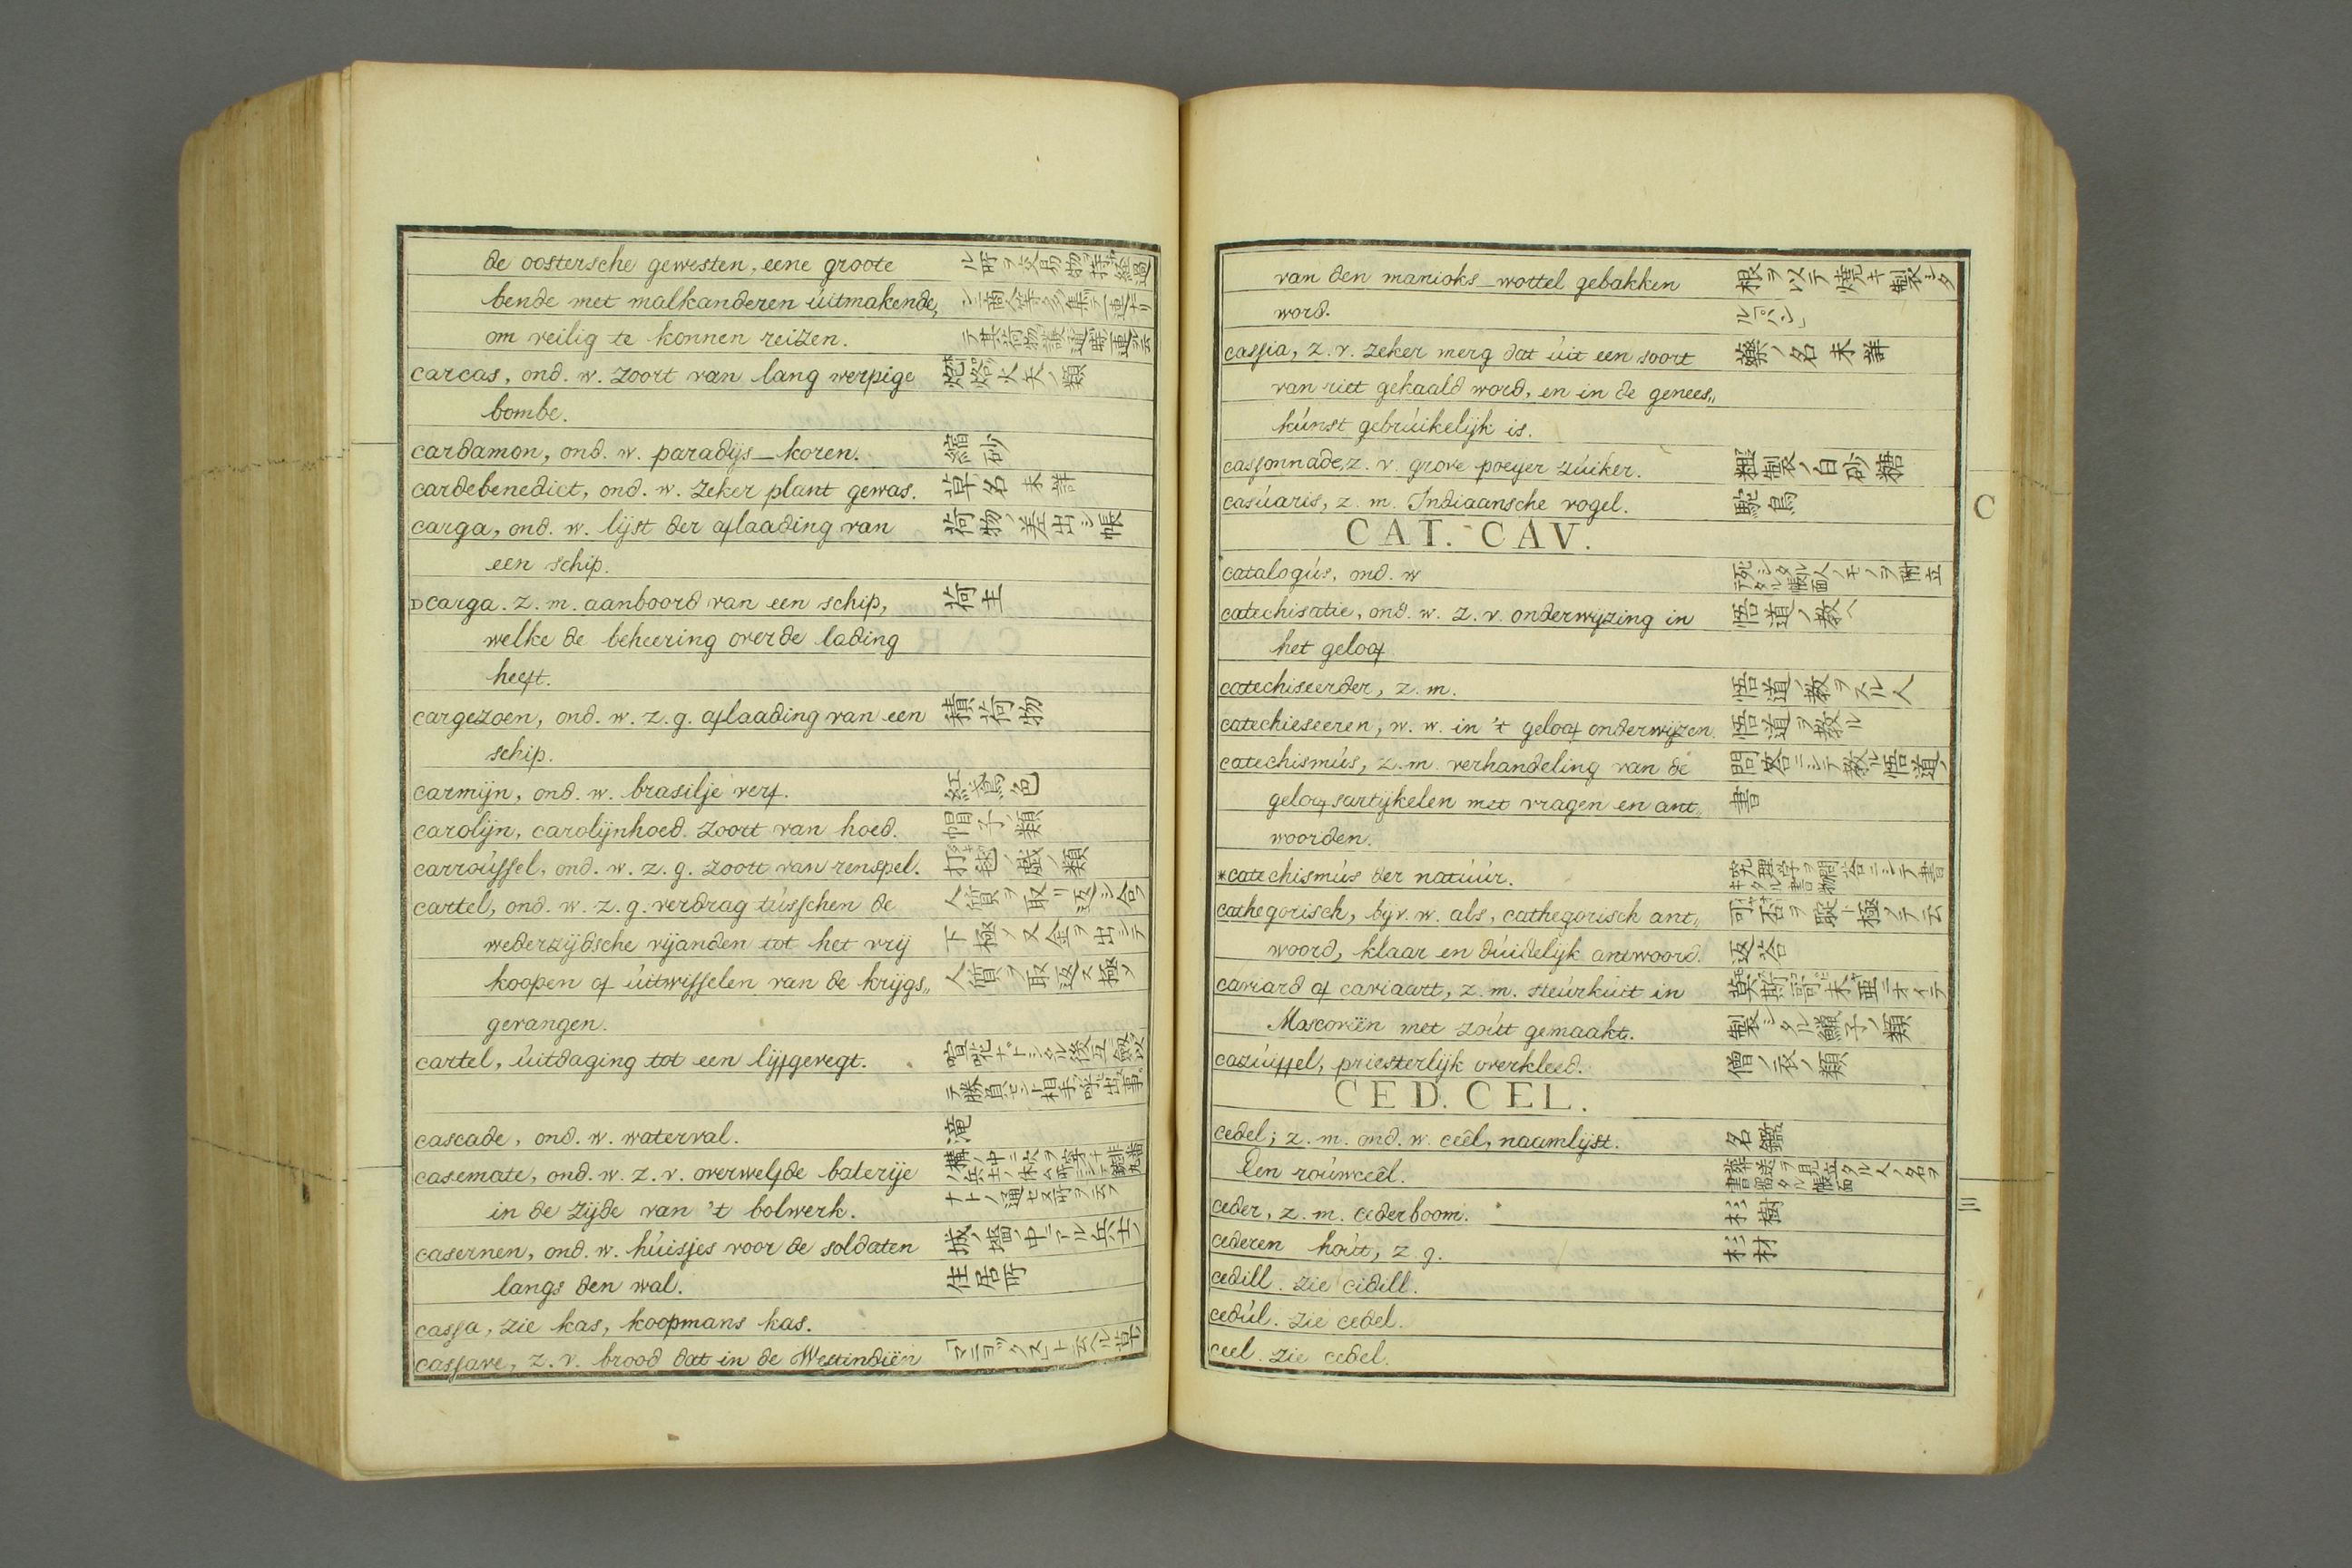 de oostersche gewesten, eene groote
bende met malkanderen úitmakende,
om veilig te konnen reizen.
carcas, ond. w. zoort van lang werpige 類
bombe.
cardamon, ond. w. paradijs-koren. 縮砂
cardebenedict, ond. w. zeker plant gewas. 草名未詳
carga, ond. w. lijst der aflaading van 荷物ノ差出シ帳
een schip.
carga. z. m. aanboord van een schip, 荷主
welke de beheering over de lading
heeft.
cargezoen, ond. w. z. g. aflaading van een 積荷物
schip.
carmijn, ond. w. brasilje verf.
carolijn, carolijnhoed. zoort van hoed. 帽子ノ類
carroússel, ond. w. z. g. zoort van renspel. 打毬ノ戯ノ類
cartel, ond. w. z. g. verdrag tússchen de 人質ヲ取リ返シ合フ
wederzijdsche vijanden tot het vrij 下極メ又金ヲ出シテ
koopen of úitwisselen van de krijgs„ 人質ヲ取返ス極メ
gevangen.
cartel, úitdaging tot een lijfgevegt.
テ勝負セント相手ヲ呼出ス事
cascade, ond. w. waterval. 滝
casemate, ond. w. z. v. overwelfde baterije
in de zijde van 't bolwerk. ナトノ通セヌ所ヲ云フ
casernen, ond. w. húisjes voor de soldaten 城ノ墻ノ中ニアル兵士ノ
langs den wal. 住居所
cassa, zie kas, koopmans kas.
cassave, z. v. brood dat in de Westindiën
van den manioks-wortel gebakken 根ヲ以テ焼キ製シタ
word. ル「パン」
cassia, z. v. zeker merg dat úit een soort 藥ノ名未詳
van riet gehaald word, en in de genees„
kúnst gebrúikelijk is.
cassonnade, z. v. grove poeyer zúiker. 粗製ノ白砂糖
casúaris, z. m. Indiaansche vogel. 駝鳥
C
CAT. CAV.
catalogús, ond. w
catechisatie, ond. w. z. v. onderwijzing in 悟道ノ教ヘ
het geloof
catechiseerder, z. m. 悟道ノ教ヲスル人
catechieseeren, w. w. in 't geloof onderwijzen. 悟道ヲ教ル
catechismús, z. m. verhandeling van de 問答ニシテ教ル悟道ノ
geloofsartijkelen met vragen en ant„ 書
woorden.
*catechismús der natúúr. 究理学ヲ問答ニシテ書キタル書物
cathegorisch, bijv. w. als, cathegorisch ant„
woord, klaar en dúidelijk antwoord. 返答
caviard of caviaart, z. m. steúrkúit in
Mascoviën met zoút gemaakt. 製シタル鱵子ノ類
cazúiffel, priesterlijk overkleed. 僧ノ衣ノ類
CED. CEL.
cedel; z. m. ond. w. ceêl, naamlijst. 名鑑
Een roúwceêl.
三
ceder, z. m. cederboom. 杉樹
cederen hoút, z. g. 杉材
cedill. zie cidill.
cedúl. zie cedel.
ceel. zie cedel.